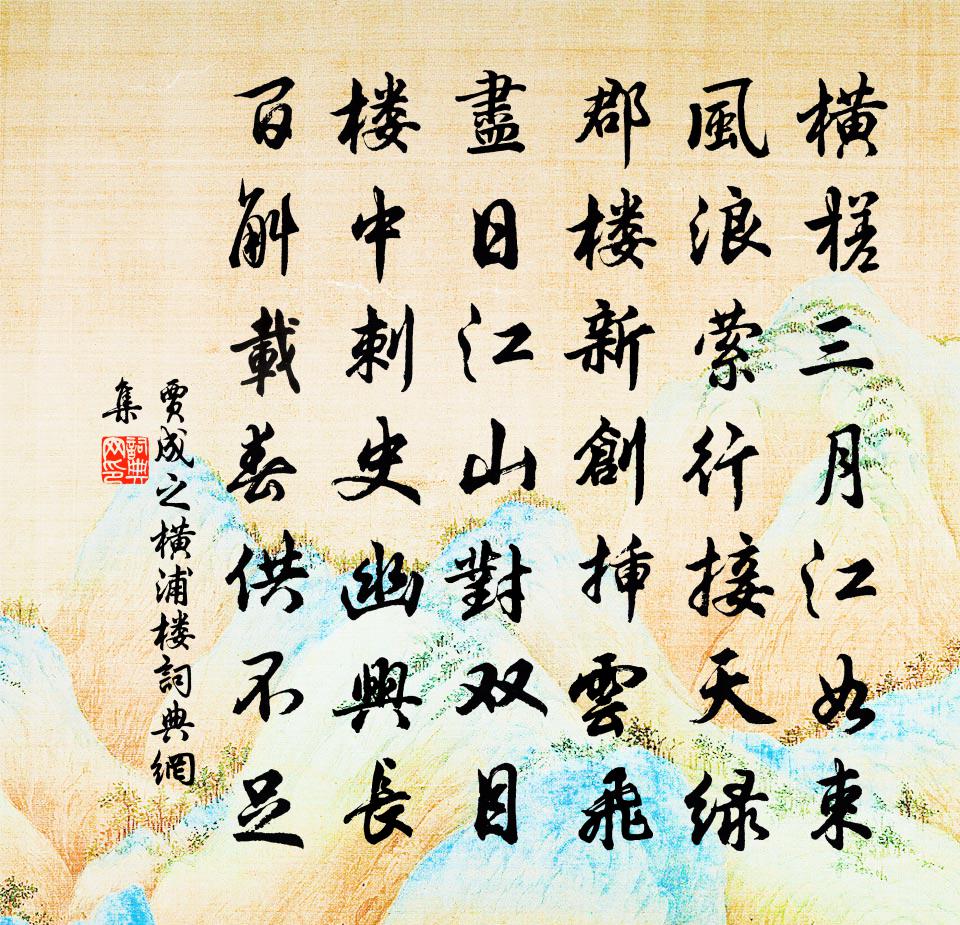 橫槎三月江如束
風浪萦行接天緑
郡楼新創挿雲飛
盡日江山對双目
楼中刺史幽興長
百斛載春供不足
賈成之橫浦楼詞典網
集
詞典网印